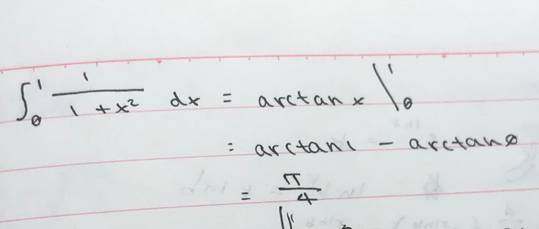 ∫₀¹ 1/(1 + x²) dx = arctan x |₀¹
= arctan 1 - arctan 0
= π/4